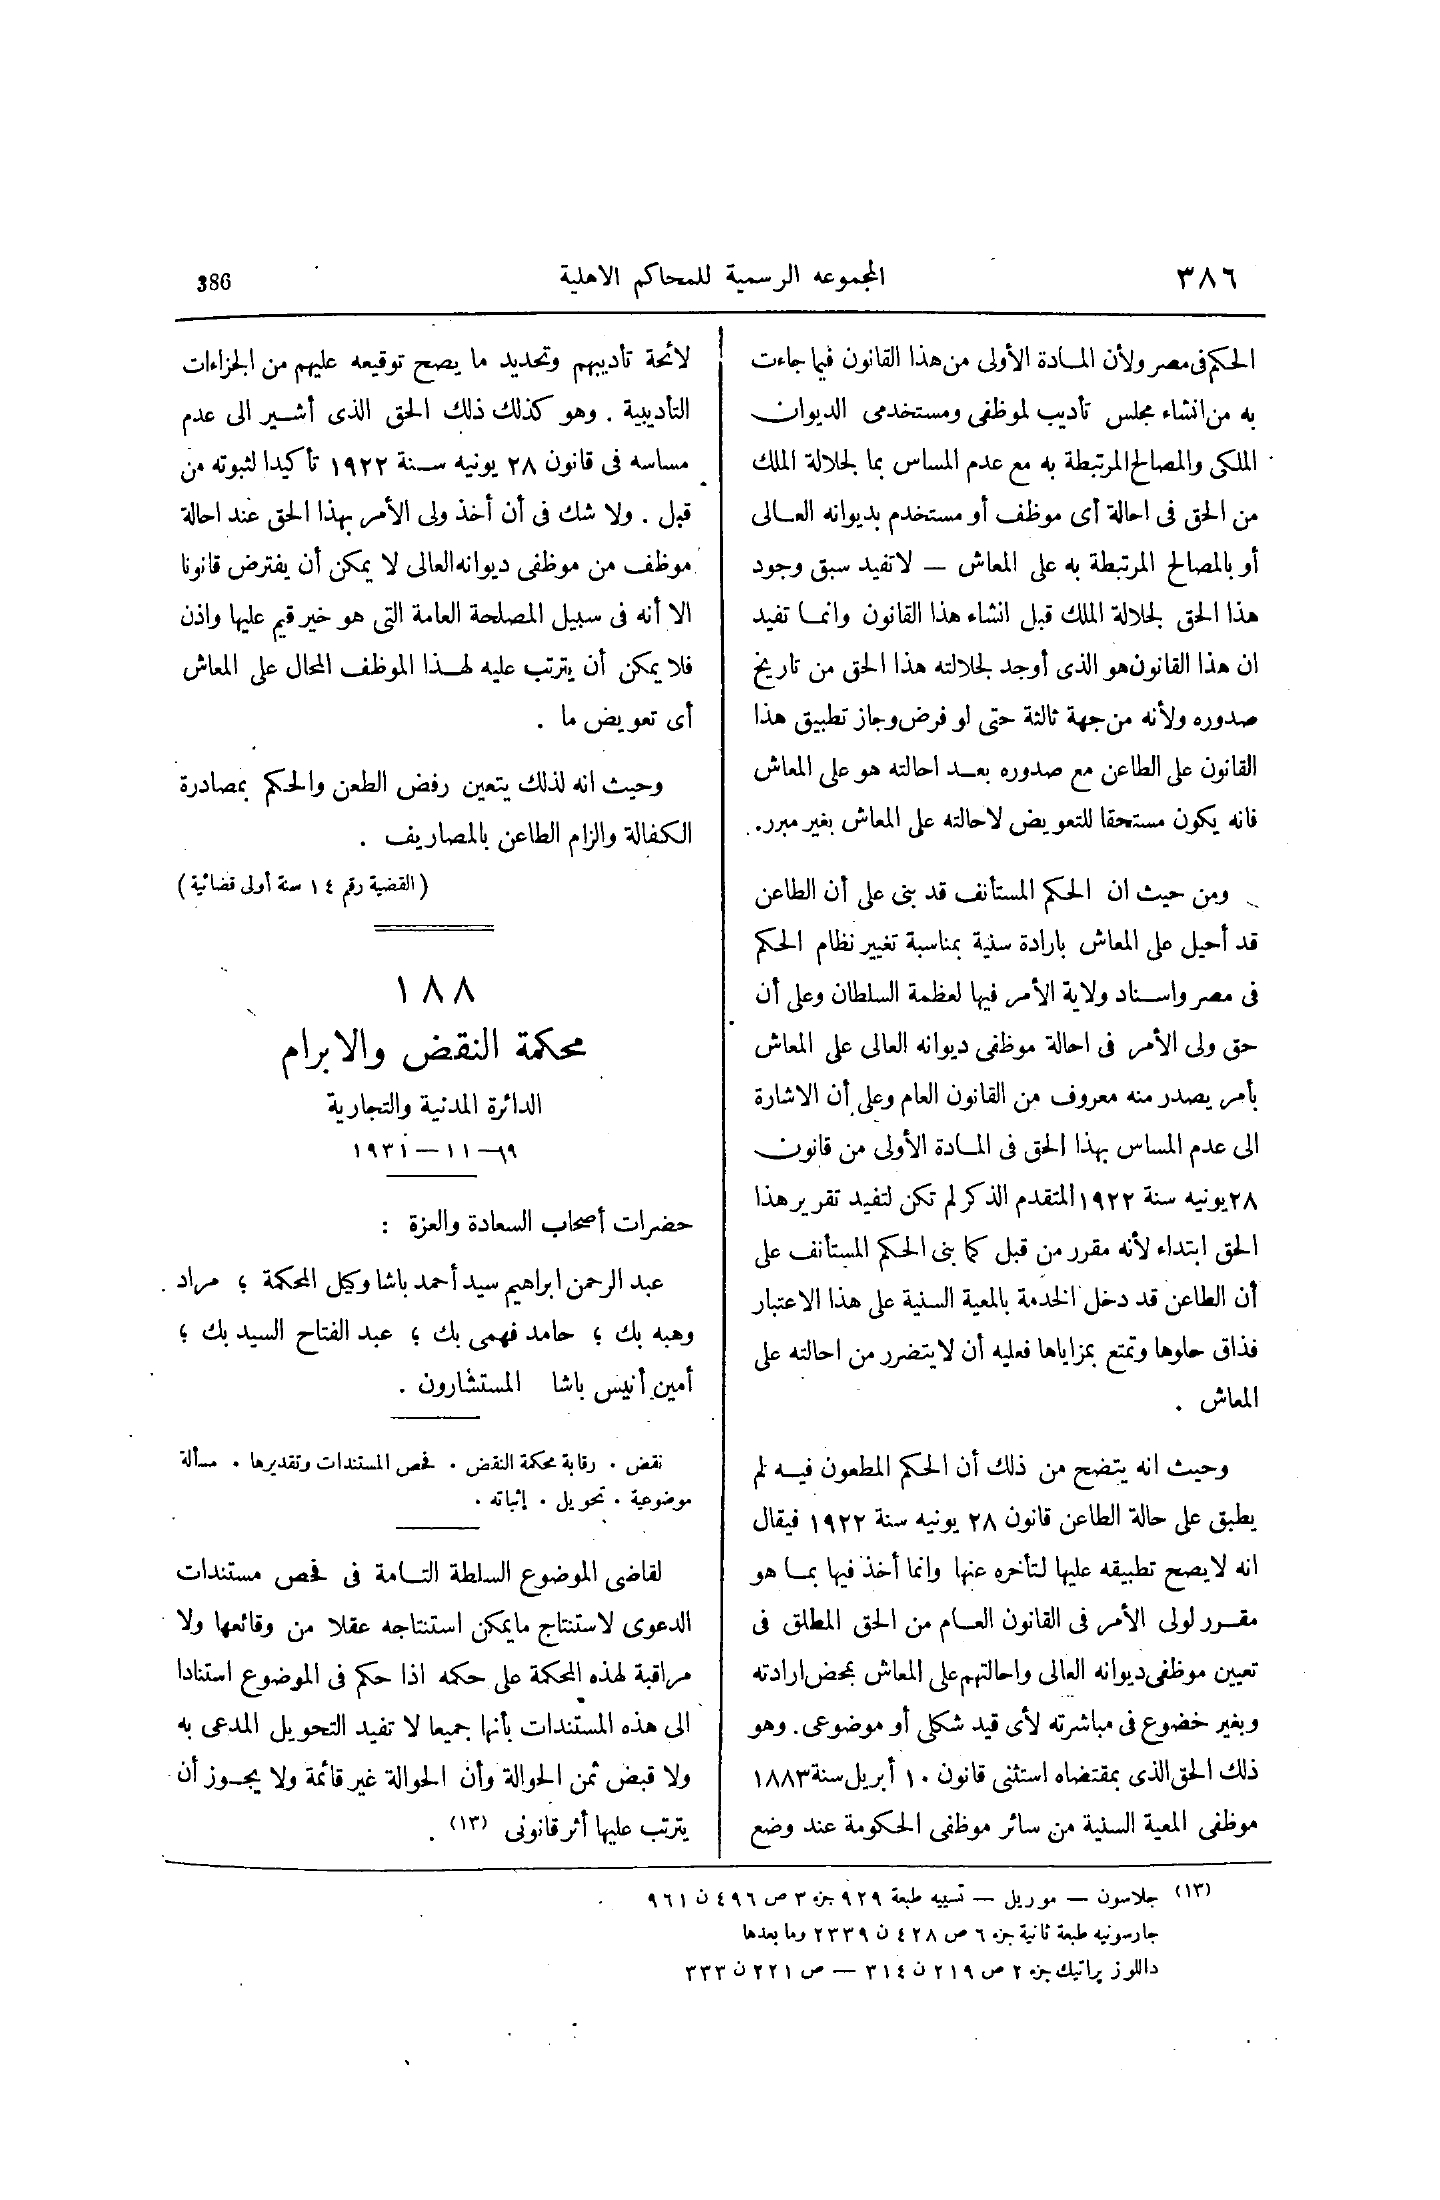 ٣٨٦
المجموعه الرسمية للمحاكم الاهلية
386
الحكم فى مصر ولأن المادة الأولى من هذا القانون فيما جاءت
به من انشاء مجلس تأديب لموظفى ومستخدمى الديوان
الملكى والمصالح المرتبطة به مع عدم المساس بما لجلالة الملك
من الحق فى احالة أى موظف أو مستخدم بديوانه العالى
أو بالمصالح المرتبطة به على المعاش — لا تفيد سبق وجود
هذا الحق لجلالة الملك قبل انشاء هذا القانون وانما تفيد
ان هذا القانون هو الذى أوجد لجلالته هذا الحق من تاريخ
صدوره ولأنه من جهة ثالثة حتى لو فرض وجاز تطبيق هذا
القانون على الطاعن مع صدوره بعد احالته هو على المعاش
فانه يكون مستحقا للتعويض لاحالته على المعاش بغير مبرر.
ومن حيث ان الحكم المستأنف قد بنى على أن الطاعن
قد أحيل على المعاش بارادة سنية بمناسبة تغيير نظام الحكم
فى مصر واسناد ولاية الأمر فيها لعظمة السلطان وعلى أن
حق ولى الأمر فى احالة موظفى ديوانه العالى على المعاش
بأمر يصدر منه معروف من القانون العام وعلى أن الاشارة
الى عدم المساس بهذا الحق فى المادة الأولى من قانون
٢٨ يونيه سنة ١٩٢٢ المتقدم الذكر لم تكن لتفيد تقرير هذا
الحق ابتداء لأنه مقرر من قبل كما بنى الحكم المستأنف على
أن الطاعن قد دخل الخدمة بالمعية السنية على هذا الاعتبار
فذاق حلوها وتمتع بمزاياها فعليه أن لا يتضرر من احالته على
المعاش .
وحيث انه يتضح من ذلك أن الحكم المطعون فيه لم
يطبق على حالة الطاعن قانون ٢٨ يونيه سنة ١٩٢٢ فيقال
انه لا يصح تطبيقه عليها لتأخره عنها وانما أخذ فيها بما هو
مقرر لولى الأمر فى القانون العام من الحق المطلق فى
تعيين موظفى ديوانه العالى واحالتهم على المعاش بمحض ارادته
وبغير خضوع فى مباشرته لأى قيد شكلى أو موضوعى. وهو
ذلك الحق الذى بمقتضاه استثنى قانون ١٠ أبريل سنة ١٨٨٣
موظفى المعية السنية من سائر موظفى الحكومة عند وضع
لائحة تأديبهم وتحديد ما يصح توقيعه عليهم من الجزاءات
التأديبية . وهو كذلك ذلك الحق الذى أشير الى عدم
مساسه فى قانون ٢٨ يونيه سنة ١٩٢٢ تأكيدا لثبوته من
قبل . ولا شك فى أن أخذ ولى الأمر بهذا الحق عند احالة
موظف من موظفى ديوانه العالى لا يمكن أن يفترض قانونا
الا أنه فى سبيل المصلحة العامة التى هو خير قيم عليها واذن
فلا يمكن أن يترتب عليه لهذا الموظف المحال على المعاش
أى تعويض ما .
وحيث انه لذلك يتعين رفض الطعن والحكم بمصادرة
الكفالة والزام الطاعن بالمصاريف .
(القضية رقم ١٤ سنة أولى قضائية)
١٨٨
محكمة النقض والابرام
الدائرة المدنية والتجارية
١٩—١١—١٩٣١
حضرات أصحاب السعادة والعزة :
عبد الرحمن ابراهيم سيد أحمد باشا وكيل المحكمة ؛ مراد
وهبه بك ؛ حامد فهمى بك ؛ عبد الفتاح السيد بك ؛
أمين أنيس باشا المستشارون .
نقض . رقابة محكمة النقض . فحص المستندات وتقديرها . مسألة
موضوعية . تحويل . إثباته .
لقاضى الموضوع السلطة التامة فى فحص مستندات
الدعوى لاستنتاج ما يمكن استنتاجه عقلا من وقائعها ولا
مراقبة لهذه المحكمة على حكمه اذا حكم فى الموضوع استنادا
الى هذه المستندات بأنها جميعا لا تفيد التحويل المدعى به
ولا قبض ثمن الحوالة وأن الحوالة غير قائمة ولا يجوز أن
يترتب عليها أثر قانونى (١٣) .
(١٣) جلاسون — موريل — تسييه طبعة ٩٢٩ جزء ٣ ص ٤٩٦ ن ٩٦١
جارسونيه طبعة ثانية جزء ٦ ص ٤٢٨ ن ٢٣٣٩ وما بعدها
داللوز پراتيك جزء ٢ ص ٢١٩ ن ٣١٤ — ص ٢٢١ ن ٣٣٣